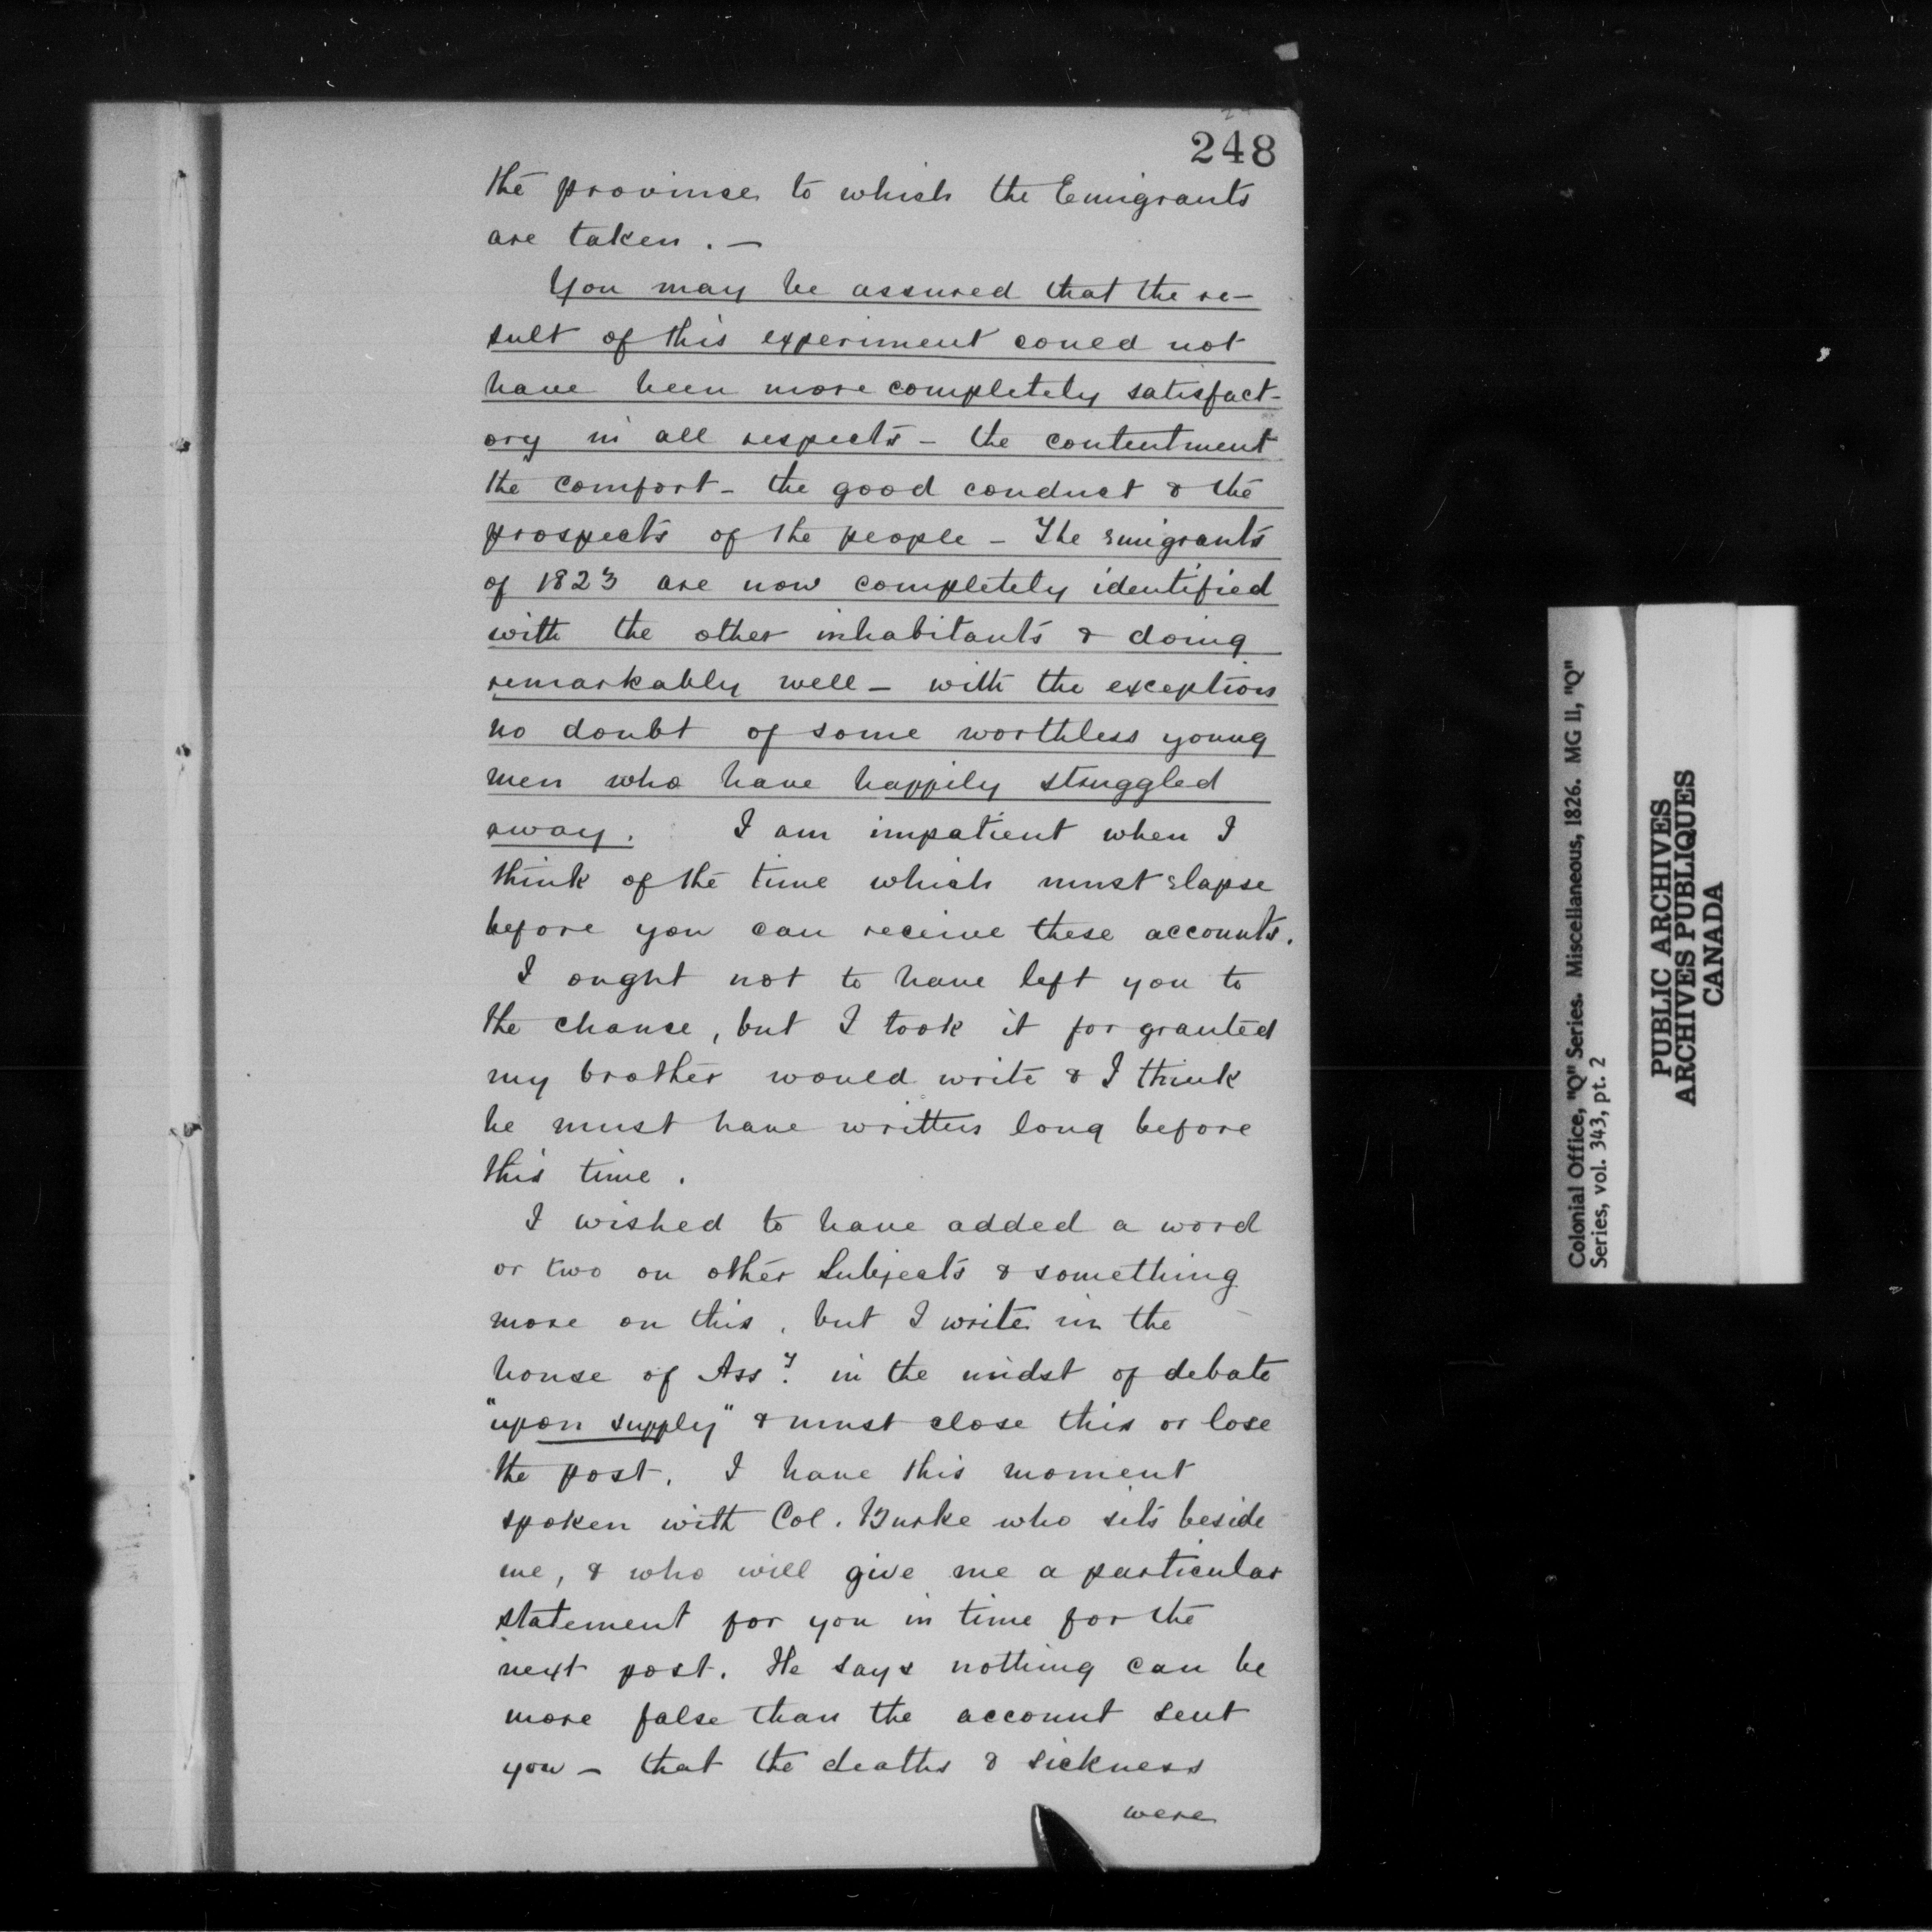 248
the province to which the Emigrants
are taken. —
You may be assured that the re-
sult of this experiment could not
have been more completely satisfact-
ory in all respects - the contentment
the comfort - the good conduct & the
prospects of the people - The emigrants
of 1823 are now completely identified
with the other inhabitants & doing
remarkably well - with the exception
no doubt of some worthless young
men who have happily struggled
away. I am impatient when I
think of the time which must elapse
before you can receive these accounts.
I ought not to have left you to
the chance, but I took it for granted
my brother would write & I think
he must have written long before
this time.
I wished to have added a word
or two on other subjects & something
more on this, but I write in the
house of Ass.y in the midst of debate
"upon supply" & must close this or lose
the post. I have this moment
spoken with Col. Burke who sits beside
me, & who will give me a particular
statement for you in time for the
next post. He says nothing can be
more false than the account sent
you - that the deaths & sickness
were
Colonial Office, "Q" Series. Miscellaneous, 1826. MG 11, "Q"
Series, vol. 343, pt. 2
PUBLIC ARCHIVES
ARCHIVES PUBLIQUES
CANADA